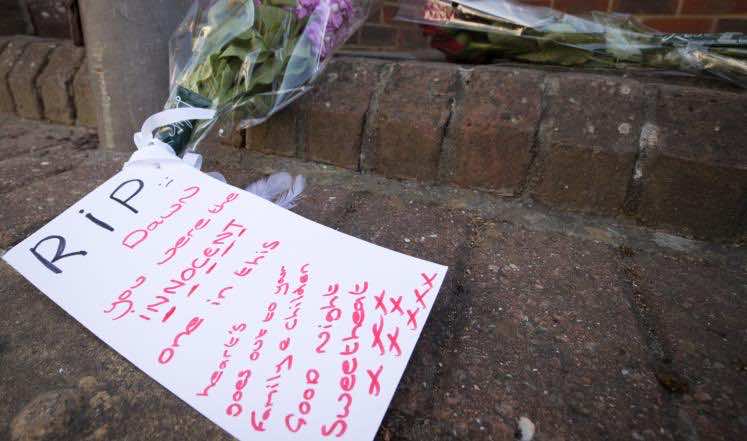 RIP :-
Dawn
you were the
INNOCENT
one in this
heart's
Does out to your
Family & Children
Good Night
Sweetheat
x x x
x x x x x x